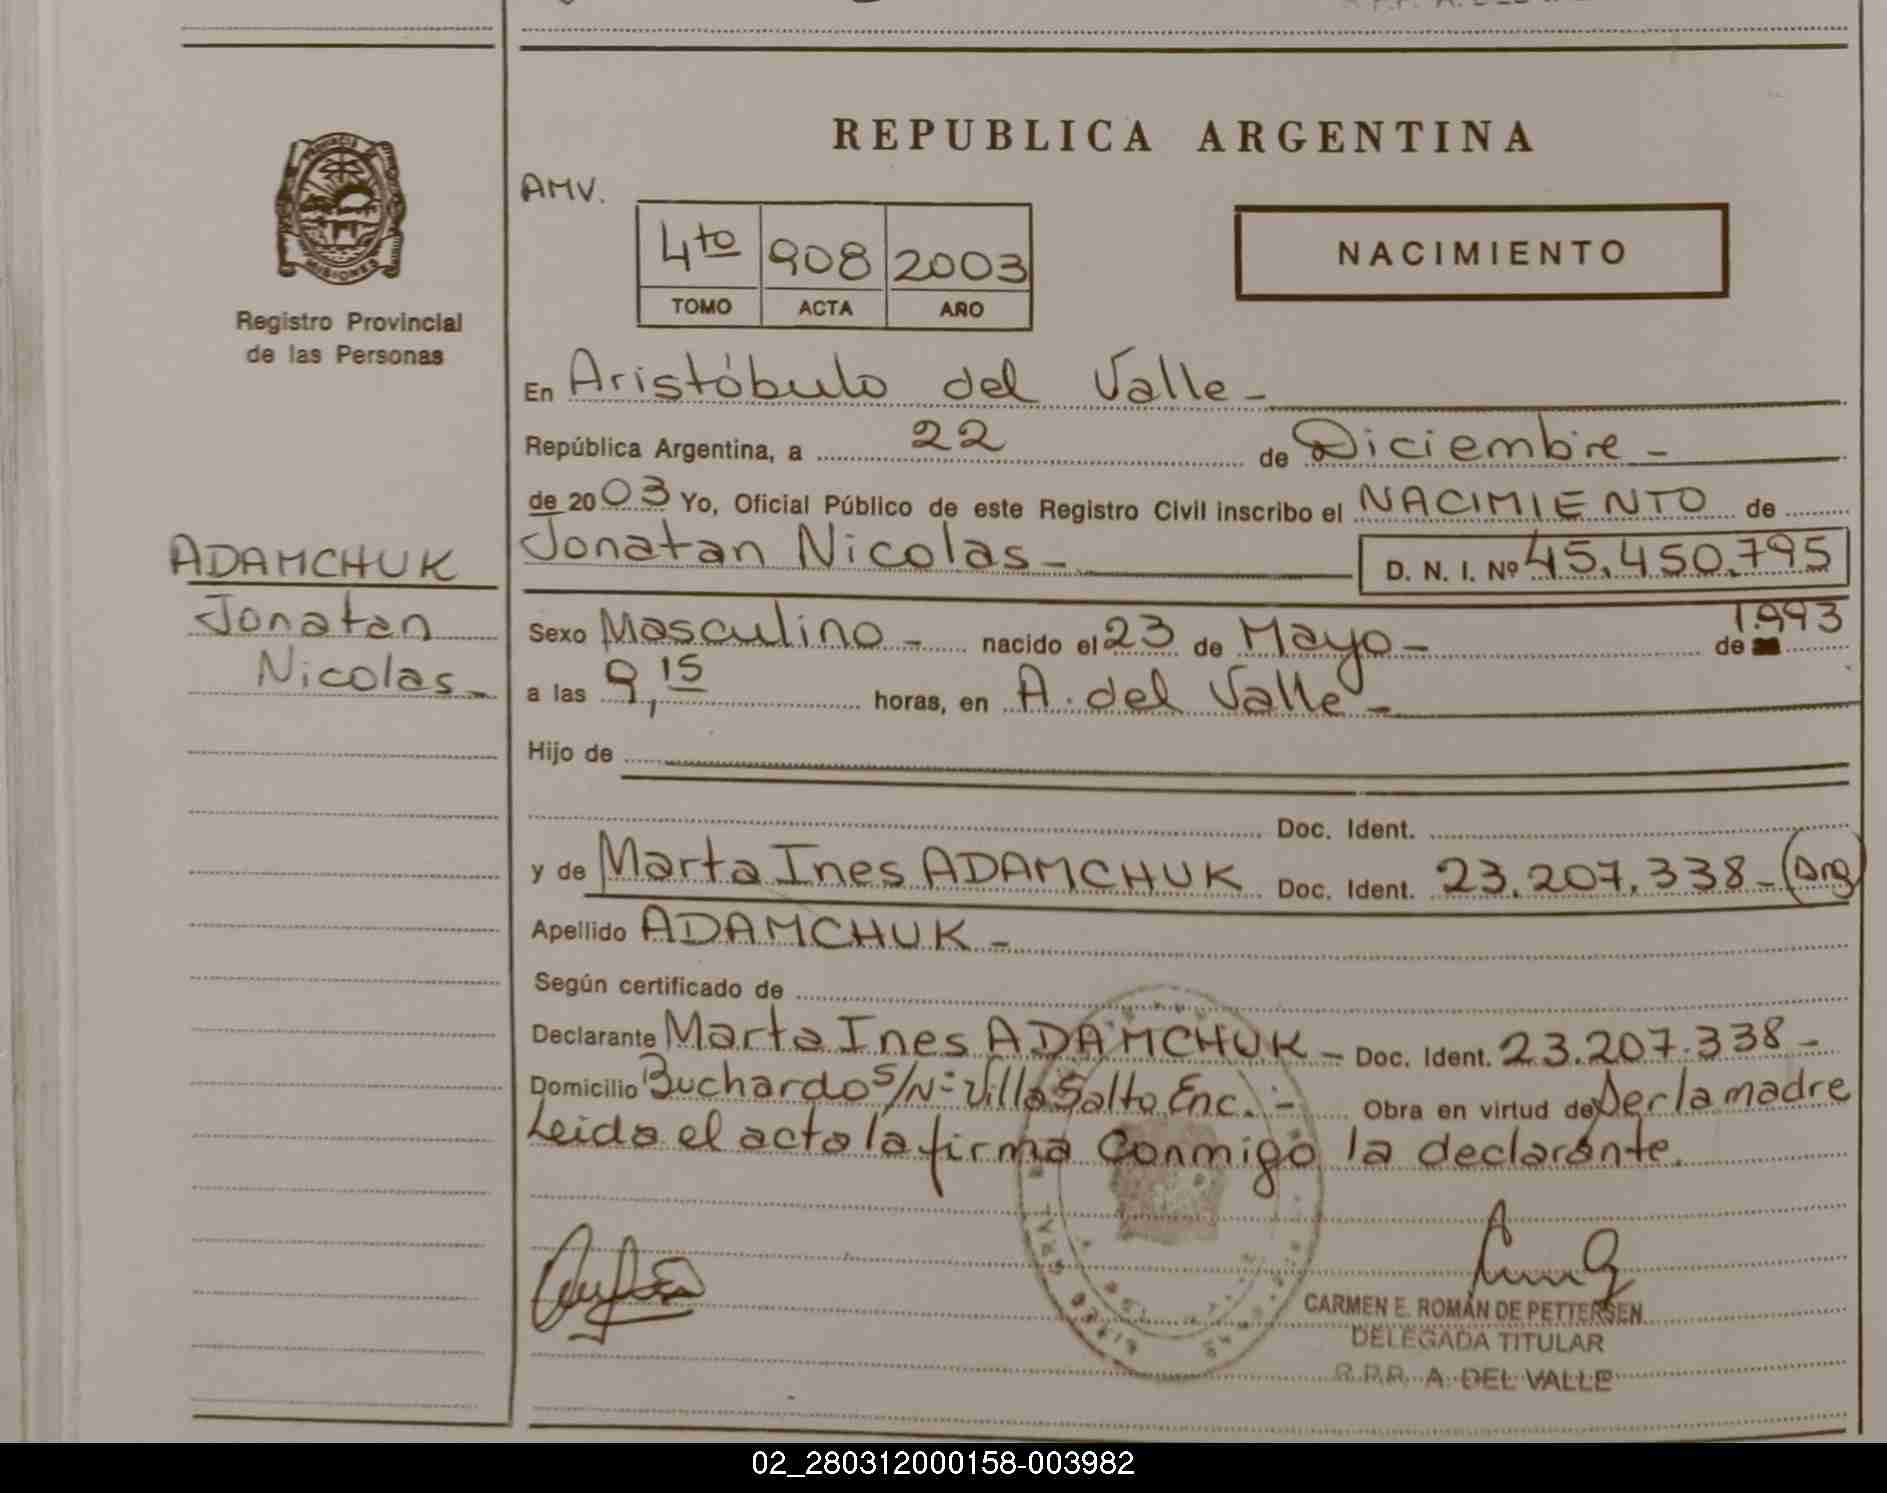 REPUBLICA ARGENTINA
PROVINCIA DE
MISIONES
Registro Provincial
de las Personas
AMV.
4to 908 2003
TOMO ACTA AÑO
NACIMIENTO
En Aristóbulo del Valle -
República Argentina, a 22 de Diciembre -
de 2003 Yo, Oficial Público de este Registro Civil inscribo el NACIMIENTO de
ADAMCHUK
Jonatan
Nicolas -
Jonatan Nicolas - D. N. I. Nº 45.450.795
Sexo Masculino - nacido el 23 de Mayo - de 1.993
a las 9,15 horas, en A. del Valle -
Hijo de
Doc. Ident.
y de Marta Ines ADAMCHUK Doc. Ident. 23.207.338 - (Arg)
Apellido ADAMCHUK -
Según certificado de
Declarante Marta Ines ADAMCHUK - Doc. Ident. 23.207.338 -
Domicilio Buchardo S/Nº Villa Salto Enc. - Obra en virtud de Ser la madre
Leida el acta la firma conmigo la declarante.
CARMEN E. ROMÁN DE PETTERSEN
DELEGADA TITULAR
R.P.P. A. DEL VALLE
02_280312000158-003982